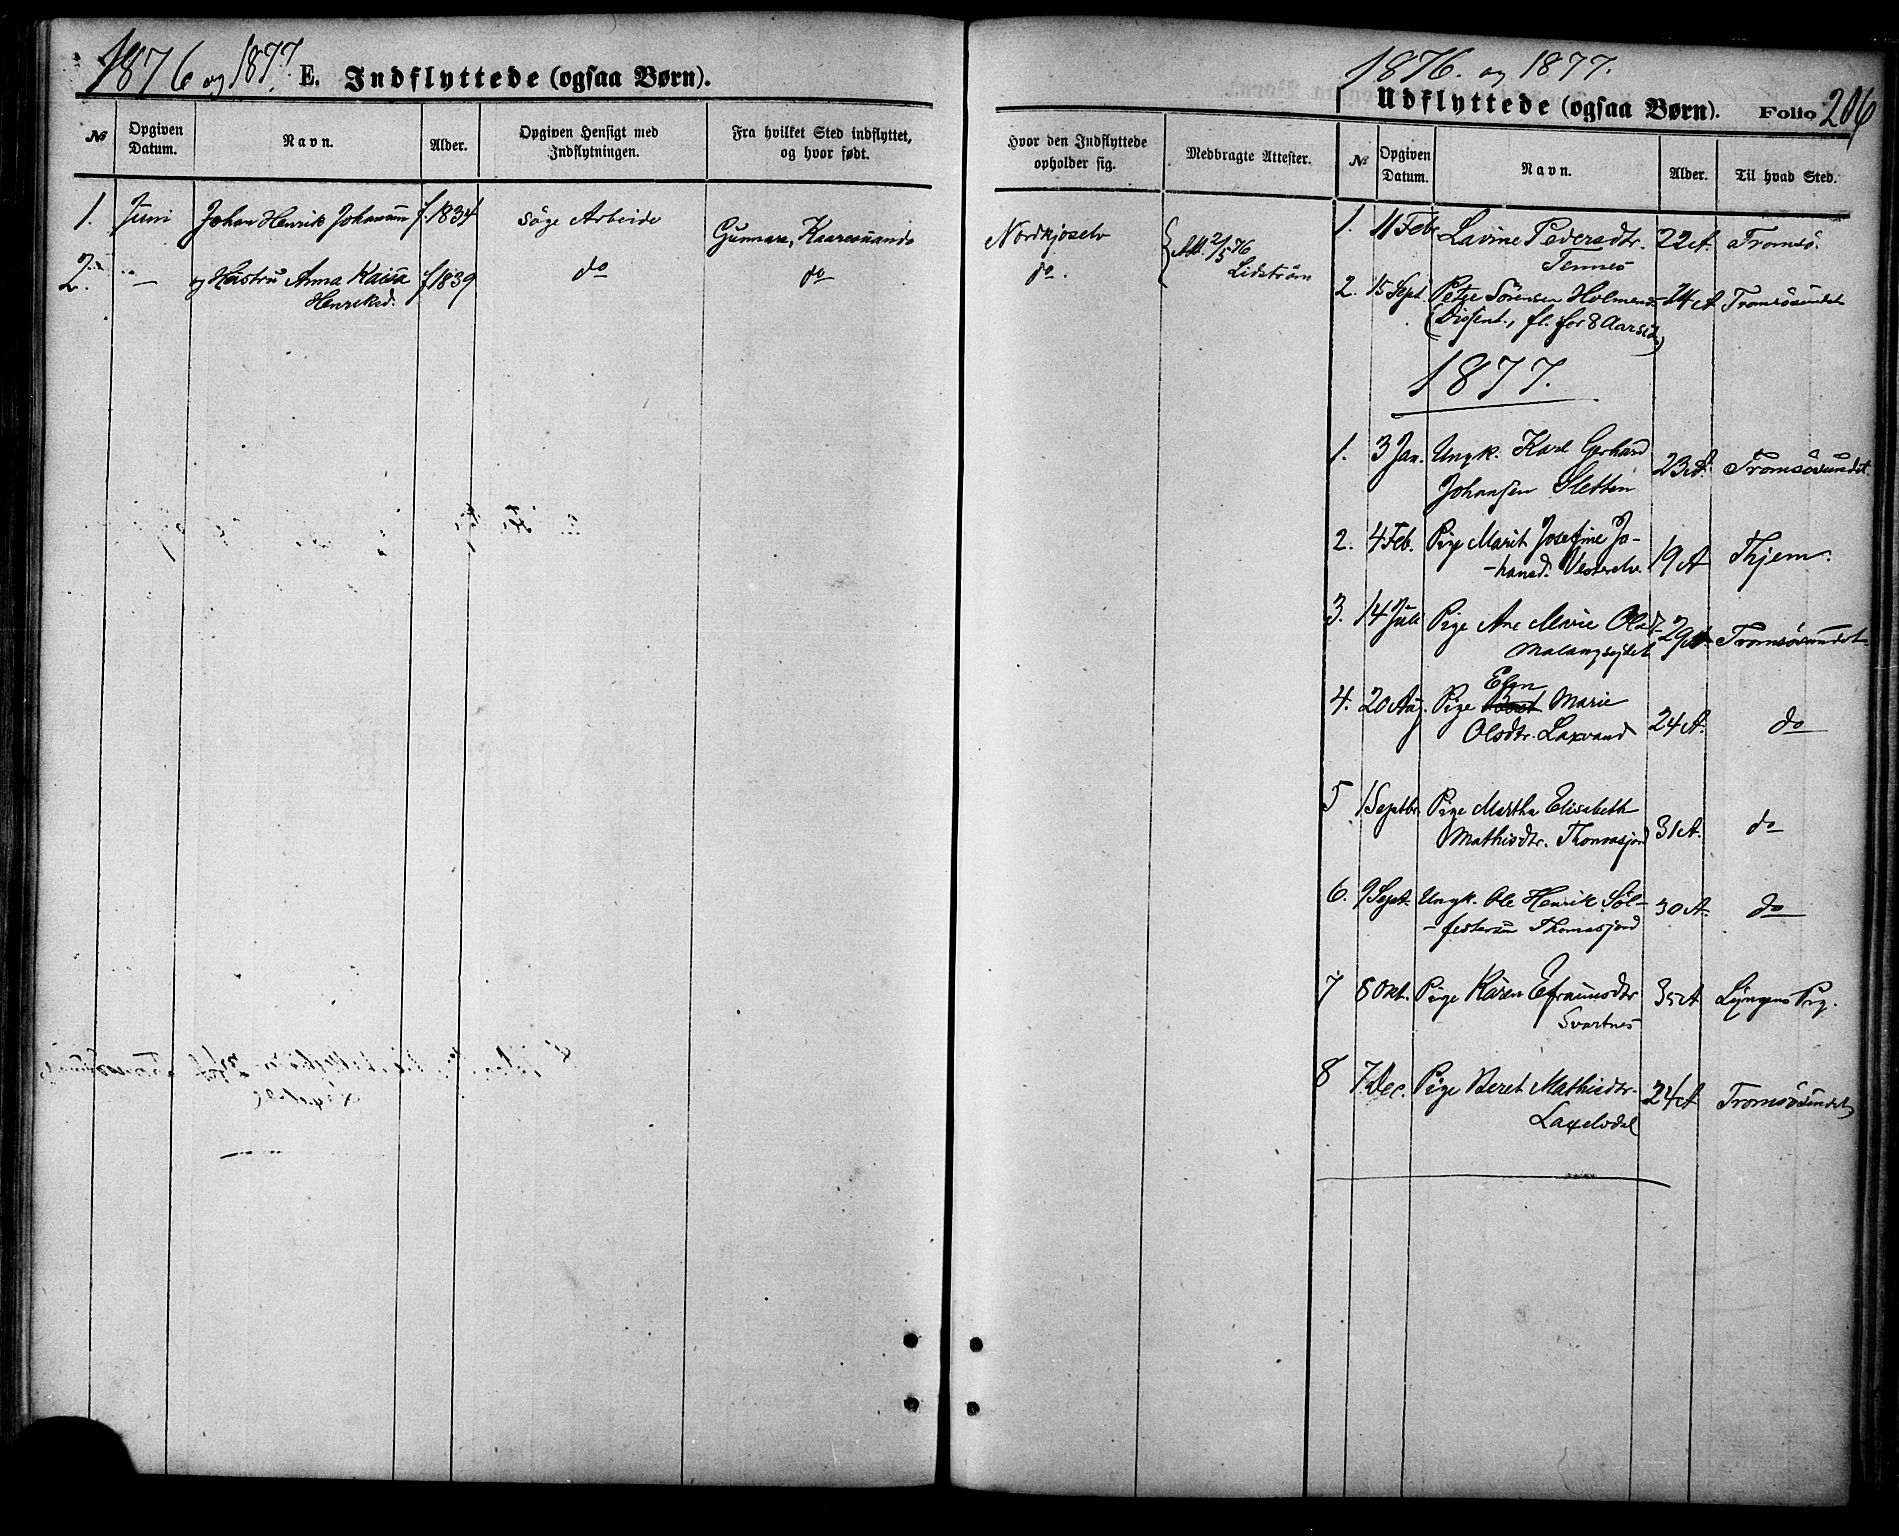 1876 og 1877. E. Indflyttede (ogsaa Børn).
№ Opgiven Datum. Navn. Alder. Opgiven Hensigt med Indflytningen. Fra hvilket Sted indflyttet, og hvor født.
Hvor den Indflyttede opholder sig. Medbragte Attester.
1. Juni Johan Henrik Johansen f. 1834 søge Arbeide Gunnara, Karesuando Nordkjoselv Att. 2/5 76
2. — og Hustru Anna Kaisa f 1839 do do do. Lidström
Henriksd.
1876. og 1877.
Udflyttede (ogsaa Børn). Folio 206
№ Opgiven Datum. Navn. Alder. Til hvad Sted.
1. 11 Feb. Lavine Pedersdtr. 22 A. Tromsø.
Tennes
2. 15 Sept. Peter Sørensen Holmenes 24 A Tromsøsundet
(Dissent., fl. for 8 Aar sid.)
1877.
1. 3 Jan. Ungk. Karl Gerhard 23 A. Tromsøsundet
Johansen Sletten
2. 4 Feb. Pige Marit Josefine Jo-
-hansd. Vesterelv. 19 A Thjem.
3. 14 Juli Pige Ane Marie Olsdt. 29 A Tromsøsundet
Malangseidet
Elen
4. 20 Aug. Pige Marie 24 A. do
Olsdtr. Laxvand
5 1 Septbr. Pige Martha Elisabeth
Mathisdtr. Thomasjord 31 A. do
6. 9 Sept. Ungk. Ole Henrik Søl- 30 A. do
-festersen Thomasjord
7 8 Okt. Pige Karen Efraimsdtr 35 A Lyngens Prg.
Svartnes
8 7 Dec. Pige Beret Mathisdtr. 24 A Tromsøsundet
Laxelvdal